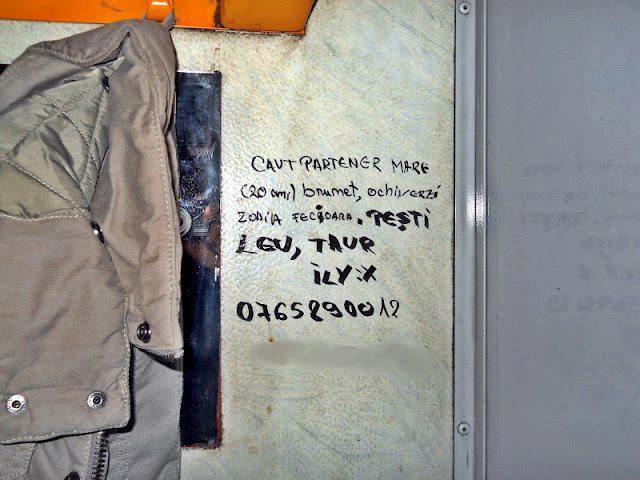 CAUT PARTENER MARE
(20 cm) brunet, ochi verzi
ZODIA FECIOARA, PEȘTI
LEU, TAUR
ILY:X
0765890012